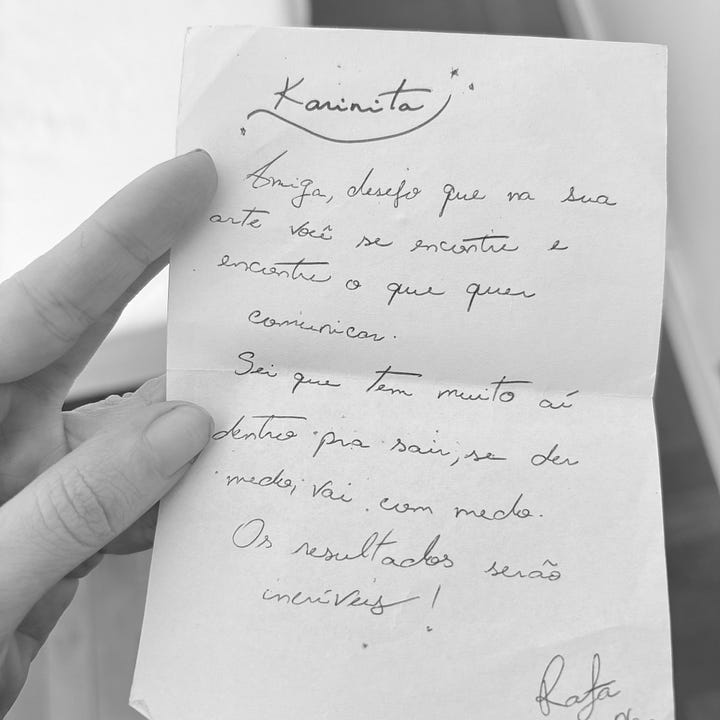 Karinita
Amiga, desejo que na sua
arte você se encontre e
encontre o que quer
comunicar.
Sei que tem muito aí
dentro pra sair, se der
medo, vai com medo.
Os resultados serão
incríveis!
Rafa